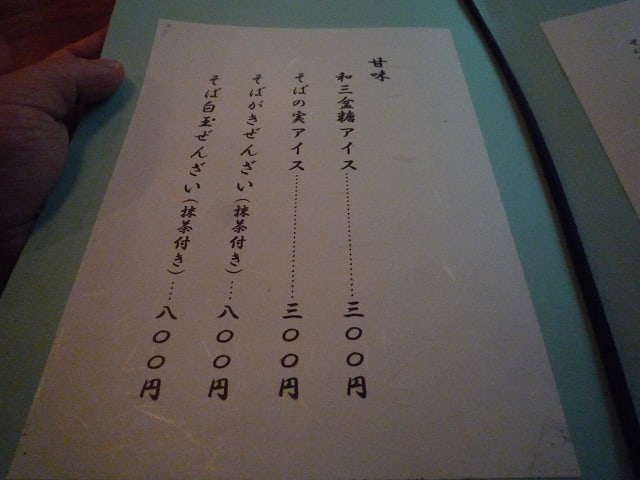 甘味
和三盆糖アイス……………三〇〇円
そばの実アイス……………三〇〇円
そばがきぜんざい(抹茶付き)…八〇〇円
そば白玉ぜんざい(抹茶付き)…八〇〇円